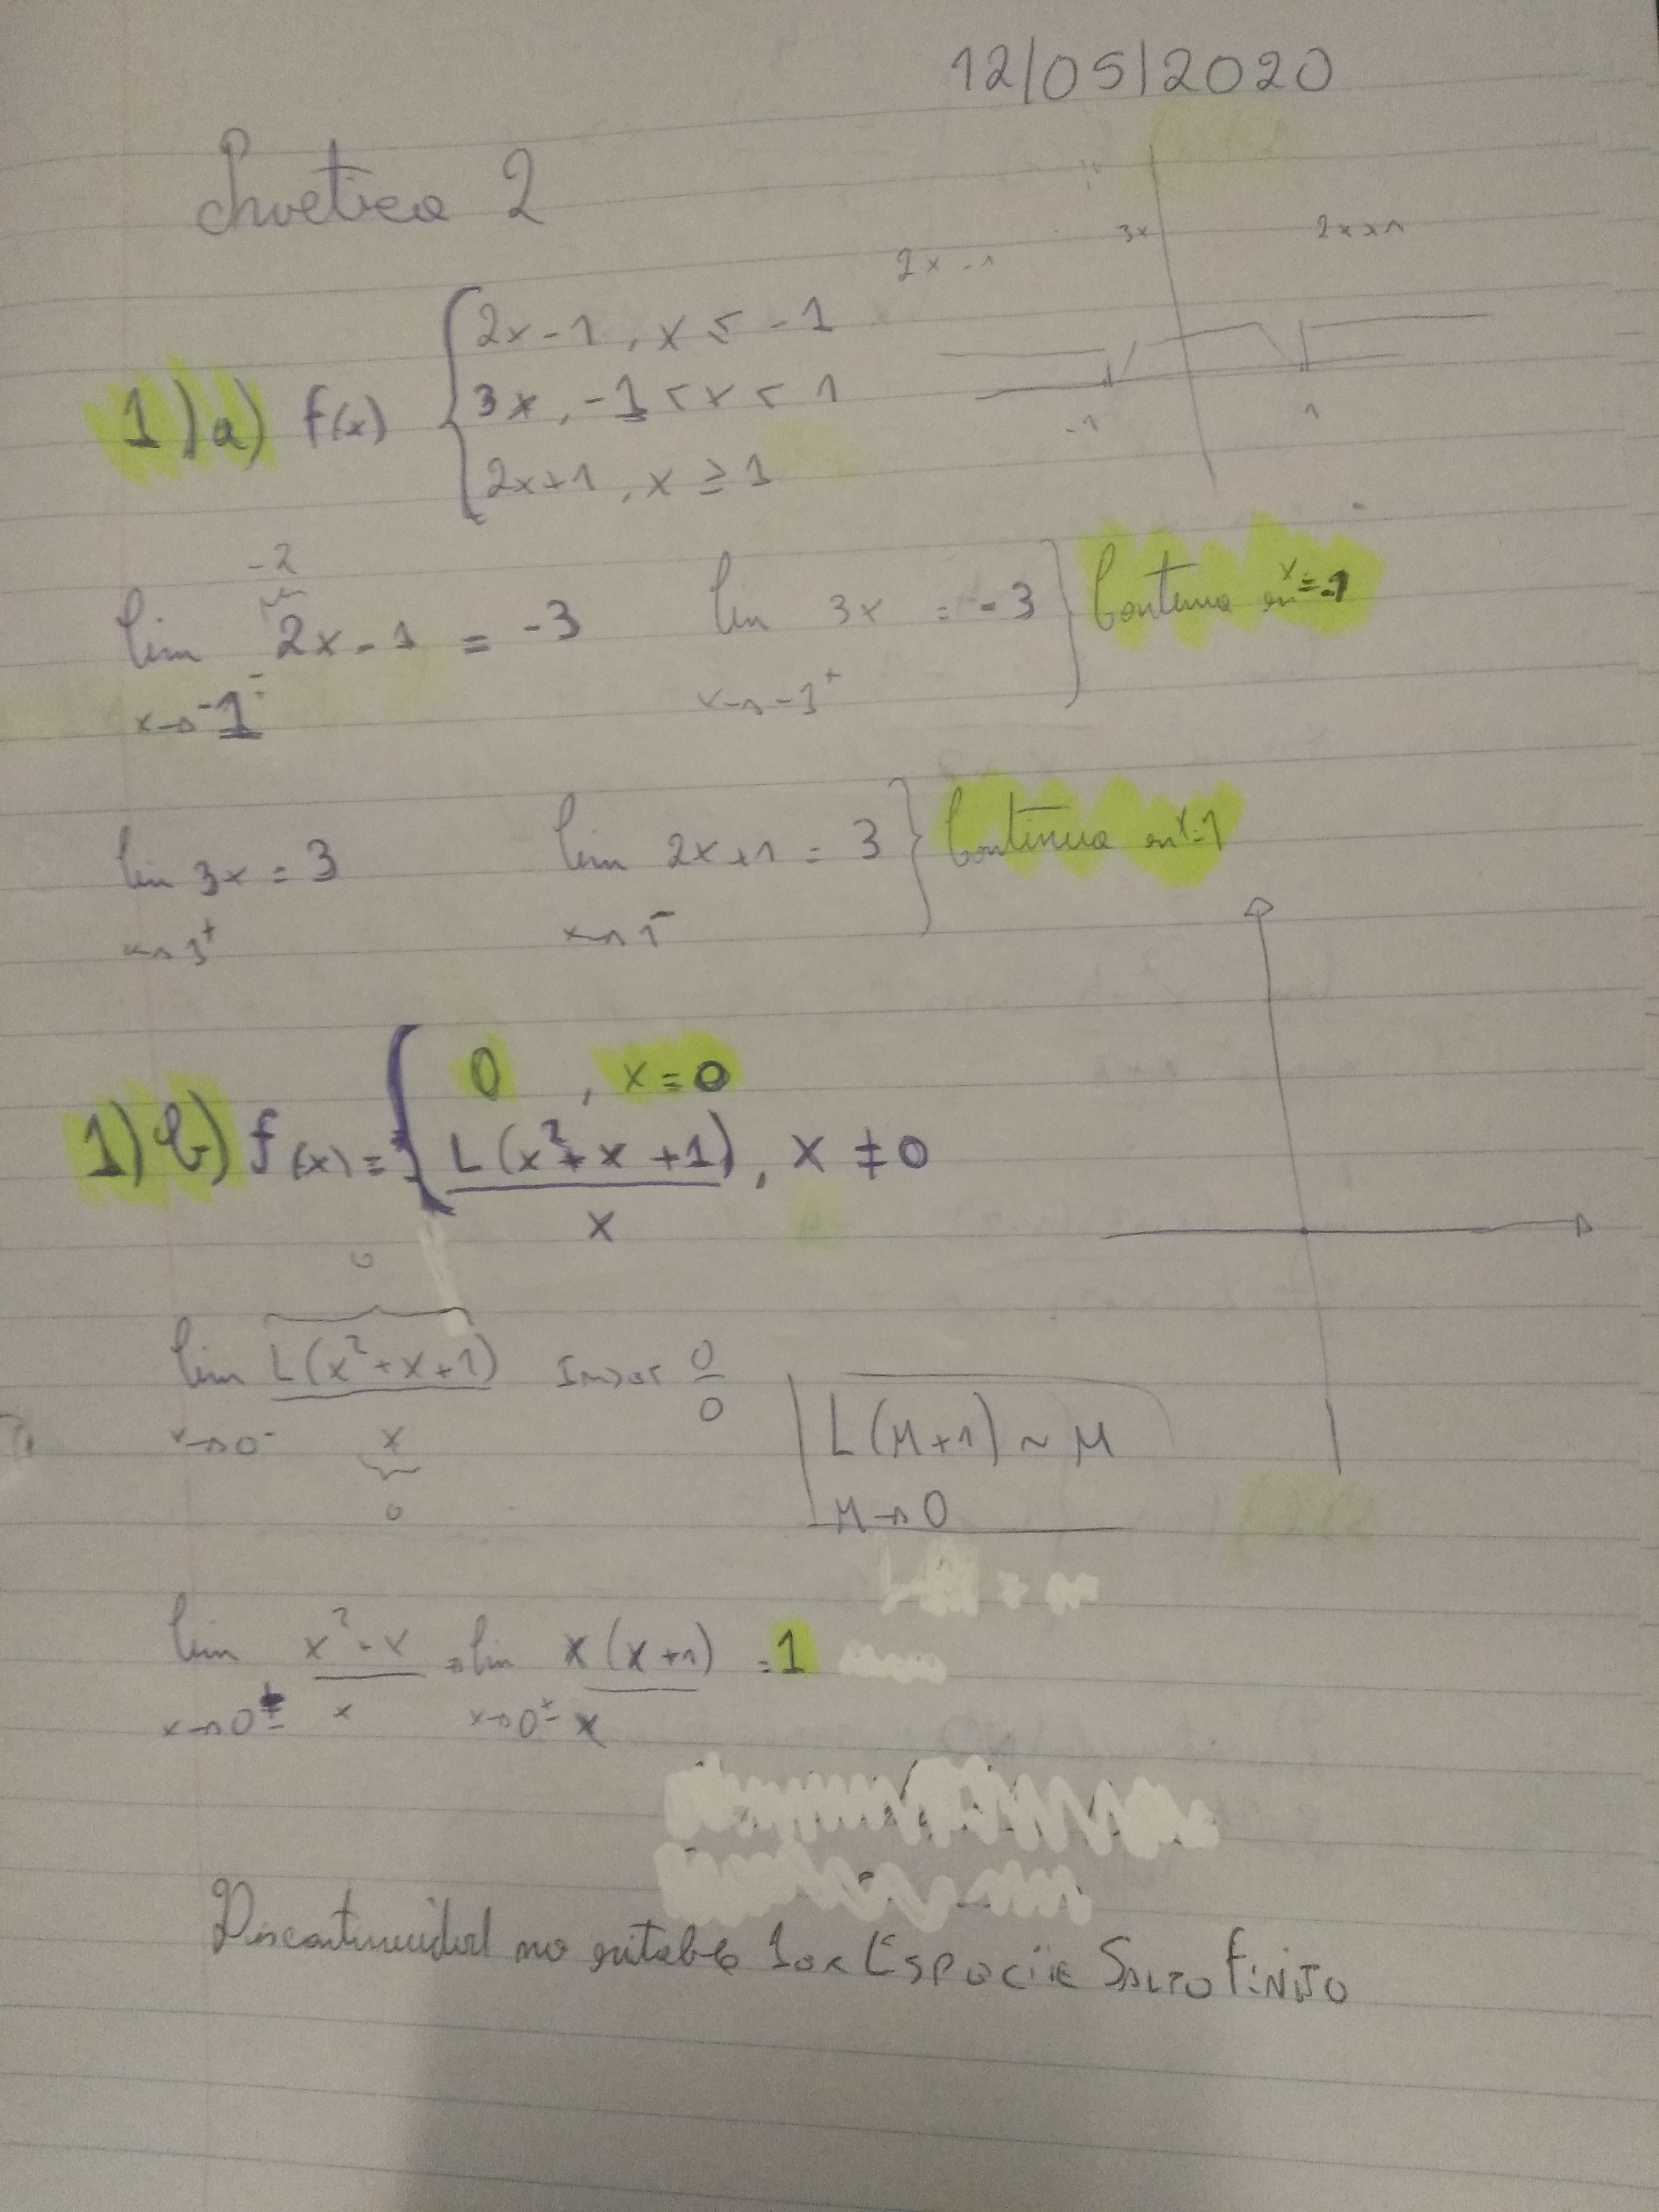 12/05/2020
Practica 2
2x-1 3x 2x+1
-1 1
1)a) f(x) { 2x-1, x ≤ -1
3x, -1 < x < 1
2x+1, x ≥ 1
-2
lim 2x-1 = -3 lim 3x = -3 } Continua en x=-1
x→-1⁻ x→-1⁺
lim 3x = 3 lim 2x+1 = 3 } Continua en x=1
x→1⁺ x→1⁻
1)b) f(x) = { 0, x=0
L(x²+x+1), x ≠ 0
x
0
lim L(x²+x+1) 0
x→0⁻ x 0
0
L(μ+1) ~ μ
μ→0
lim x²+x = lim x(x+1) = 1
x→0± x x→0± x
Discontinuidad no evitable 1er Especie Salto FiNiTO